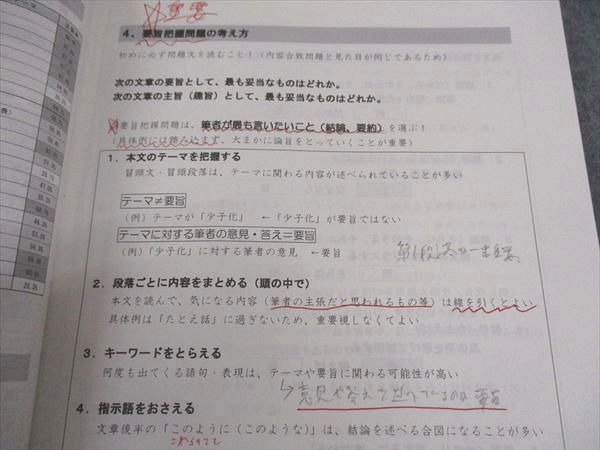 重要
4．要旨把握問題の考え方
初めに必ず問題文を読むこと！（内容合致問題と見た目が同じであるため）
次の文章の要旨として、最も妥当なものはどれか。
次の文章の主旨（趣旨）として、最も妥当なものはどれか。
要旨把握問題は、筆者が最も言いたいこと（結論、要約）を選ぶ！
（具体例には踏み込まず、大まかに論旨をとっていくことが重要）
1．本文のテーマを把握する
冒頭文・冒頭段落は、テーマに関わる内容が述べられていることが多い
テーマ≠要旨
（例）テーマが「少子化」 ←「少子化」が要旨ではない
テーマに対する筆者の意見・答え＝要旨
（例）「少子化」に対する筆者の意見 ←要旨
2．段落ごとに内容をまとめる（頭の中で）
本文を読んで、気になる内容（筆者の主張だと思われるもの等）は線を引くとよい
具体例は「たとえ話」に過ぎないため、重要視しなくてよい
3．キーワードをとらえる
何度も出てくる語句・表現は、テーマや要旨に関わる可能性が高い
4．指示語をおさえる
文章後半の「このように（このような）」は、結論を述べる合図になることが多い